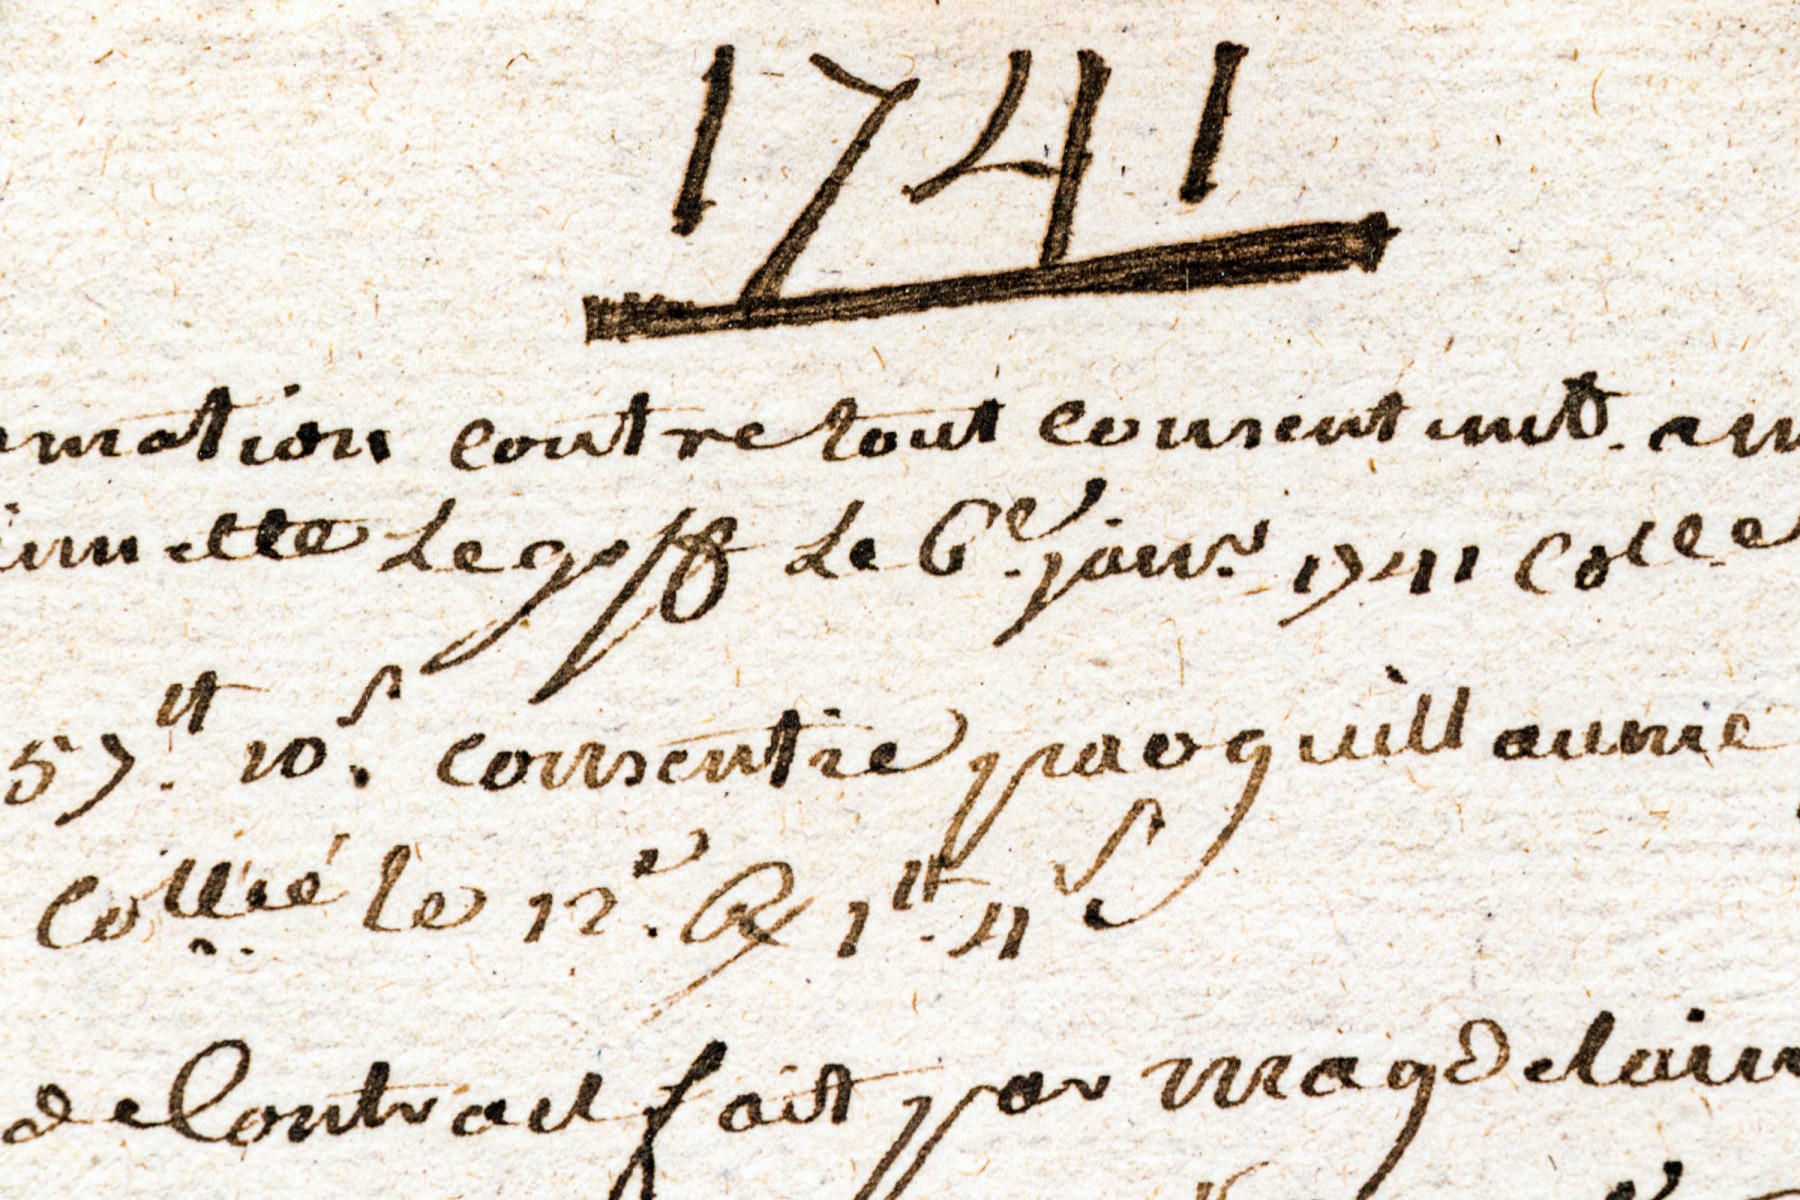 1741
mation contre tout consentmt. en
nette Le goff Le 6e. janvr. 1741 Colle
57tt. 10s. consentie par guillaume
Collié le 12e. Rx 1tt. 4s.
de Contract fait par magdelain